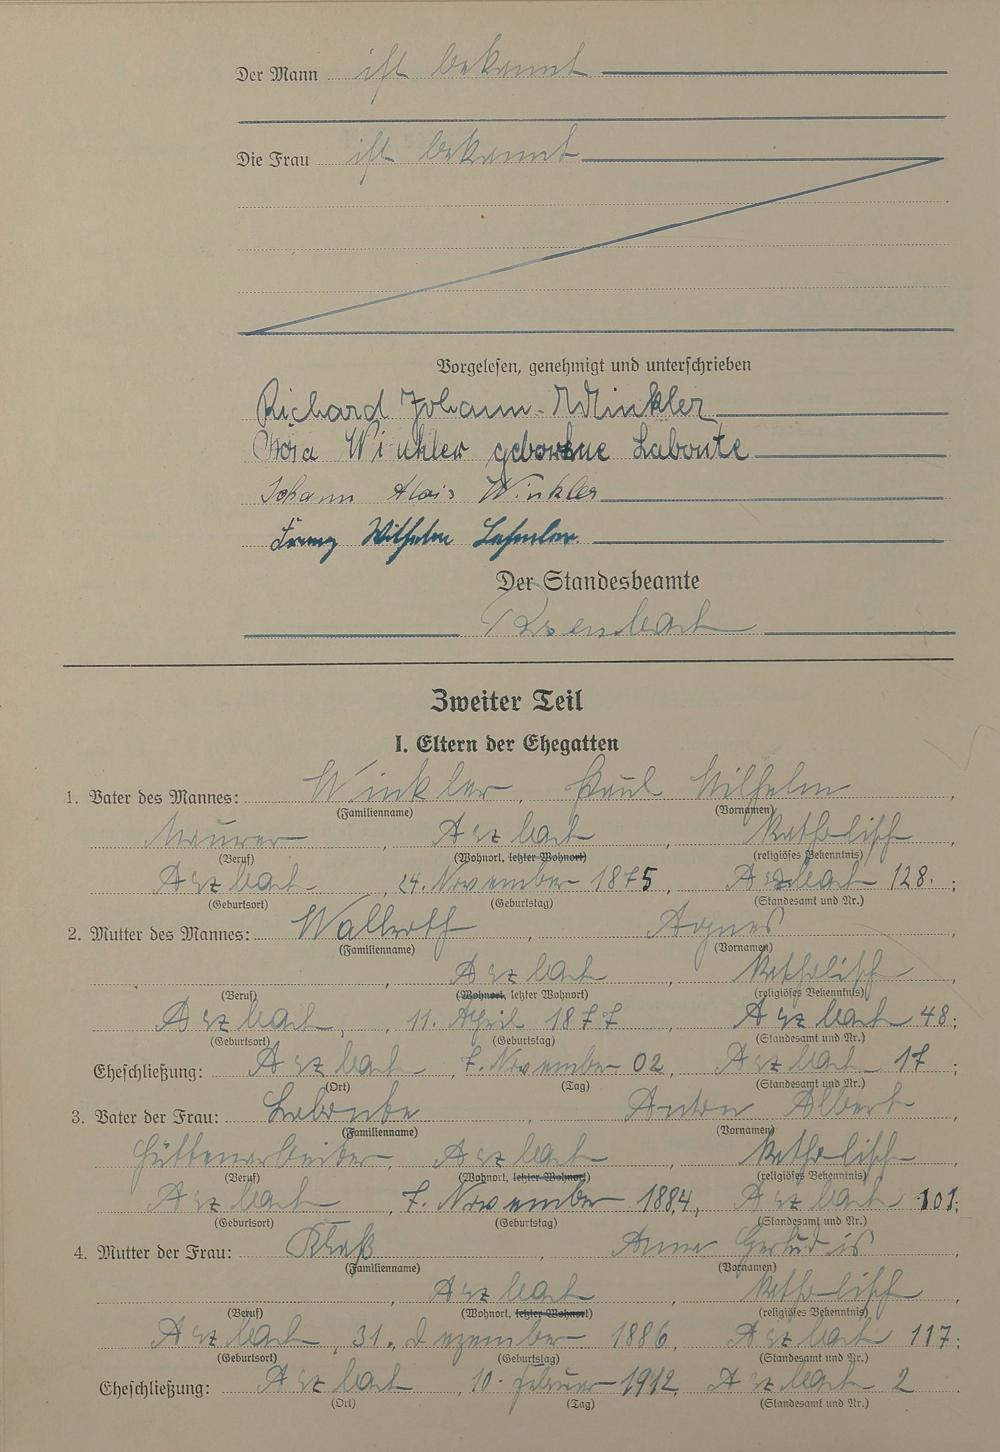 Der Mann ist bekannt
Die Frau ist bekannt
Vorgelesen, genehmigt und unterschrieben
Richard Johann Winkler
Winkler geborene Labonte
Johann Alois Winkler
Franz Wilhelm
Der Standesbeamte
Zweiter Teil
I. Eltern der Ehegatten
1. Vater des Mannes: Winkler, Paul Wilhelm,
(Familienname) (Vornamen)
Maurer, Arzbach, katholisch
(Beruf) (Wohnort, letzter Wohnort) (religiöses Bekenntnis)
Arzbach, 24. November 1875, Arzbach 128.;
(Geburtsort) (Geburtstag) (Standesamt und Nr.)
2. Mutter des Mannes: Wallroth, Agnes,
(Familienname) (Vornamen)
, Arzbach, katholisch,
(Beruf) (Wohnort, letzter Wohnort) (religiöses Bekenntnis)
Arzbach, 11. April 1877 Arzbach 48;
(Geburtsort) (Geburtstag) (Standesamt und Nr.)
Eheschließung: Arzbach, 7. November 02, Arzbach 17;
(Ort) (Tag) (Standesamt und Nr.)
3. Vater der Frau: Labonte, Anton Albert,
(Familienname) (Vornamen)
Hüttenarbeiter, Arzbach, katholisch,
(Beruf) (Wohnort, letzter Wohnort) (religiöses Bekenntnis)
Arzbach, 7. November 1884, Arzbach 101;
(Geburtsort) (Geburtstag) (Standesamt und Nr.)
4. Mutter der Frau: Klaß, Anna Gertrudis,
(Familienname) (Vornamen)
, Arzbach, katholisch,
(Beruf) (Wohnort, letzter Wohnort) (religiöses Bekenntnis)
Arzbach, 31. Dezember 1886, Arzbach 117;
(Geburtsort) (Geburtstag) (Standesamt und Nr.)
Eheschließung: Arzbach, 10. Februar 1912, Arzbach 2
(Ort) (Tag) (Standesamt und Nr.)